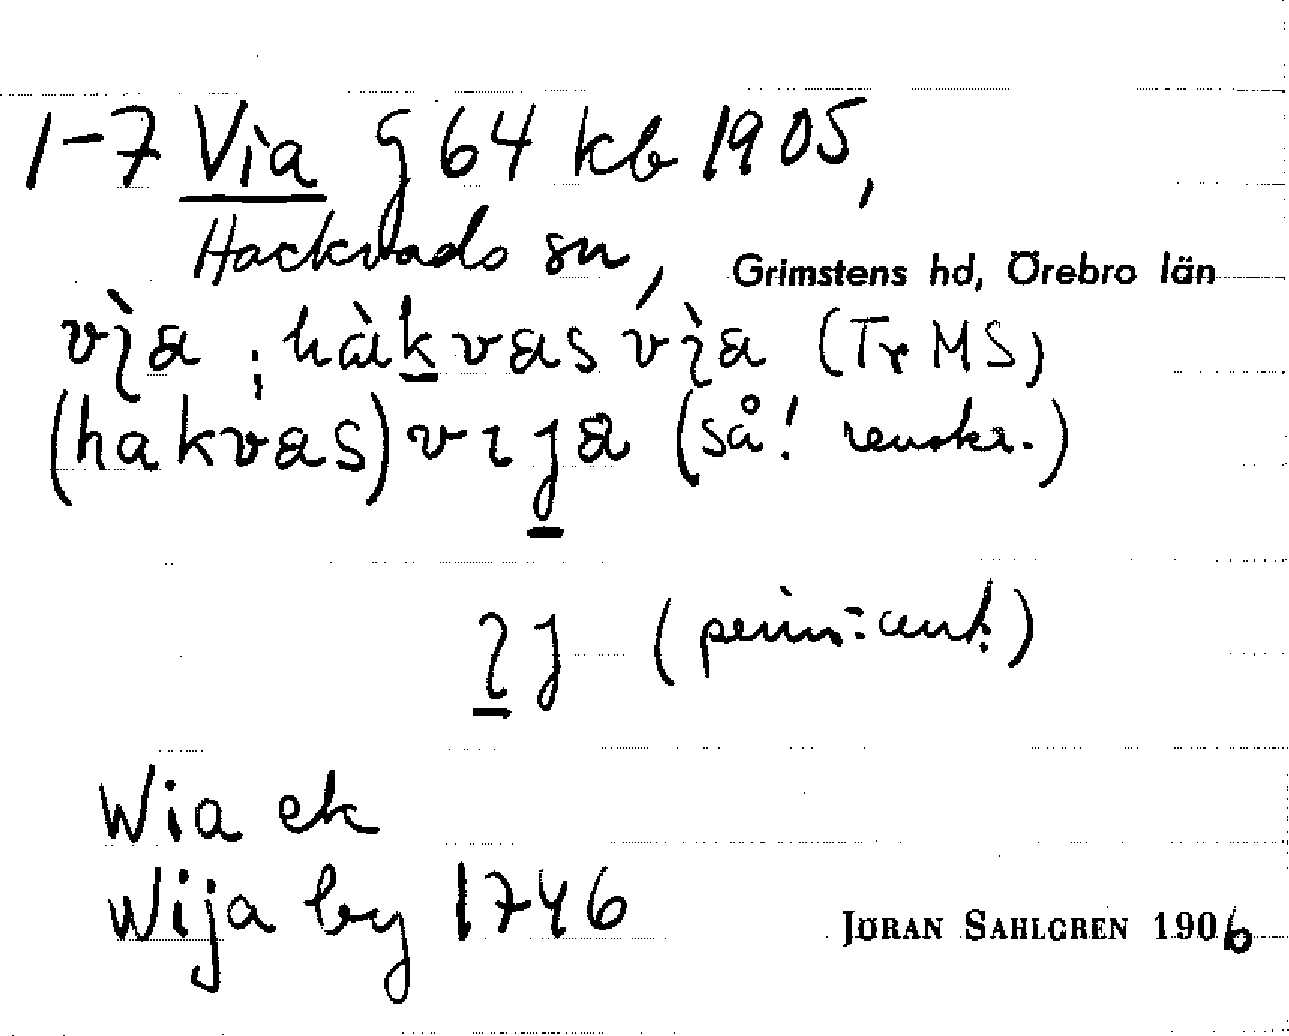 1-7 Via g 64 kb 1905,
Hackvads sn, Grimstens hd, Örebro län
vìa; hàkvas vìa (Tr MS)
(hakvas) vıja (så! renskr.)
ıj (prim:ant.)
Wia ek
Wija by 1746
JÖRAN SAHLGREN 1906